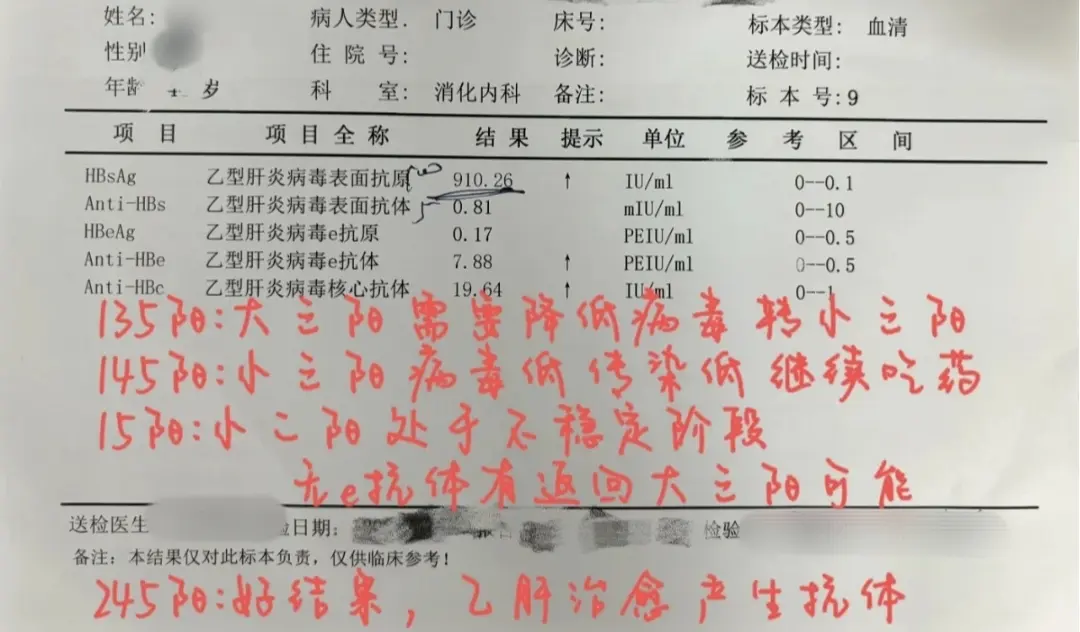 姓名: 病人类型. 门诊 床号: 标本类型: 血清
性别 住院号: 诊断: 送检时间:
年龄 岁 科室: 消化内科 备注: 标本号:9
项目 项目全称 结果 提示 单位 参考区间
HBsAg 乙型肝炎病毒表面抗原 910.26 ↑ IU/ml 0--0.1
Anti-HBs 乙型肝炎病毒表面抗体 0.81 mIU/ml 0--10
HBeAg 乙型肝炎病毒e抗原 0.17 PEIU/ml 0--0.5
Anti-HBe 乙型肝炎病毒e抗体 7.88 ↑ PEIU/ml 0--0.5
Anti-HBc 乙型肝炎病毒核心抗体 19.64 ↑ IU/ml 0--1
135阳:大三阳需要降低病毒转小三阳
145阳:小三阳病毒低传染低继续吃药
15阳:小二阳处于不稳定阶段
无e抗体有返回大三阳可能
送检医生 检日期: 报告 检验
备注: 本结果仅对此标本负责,仅供临床参考!
245阳:好结果,乙肝治愈产生抗体